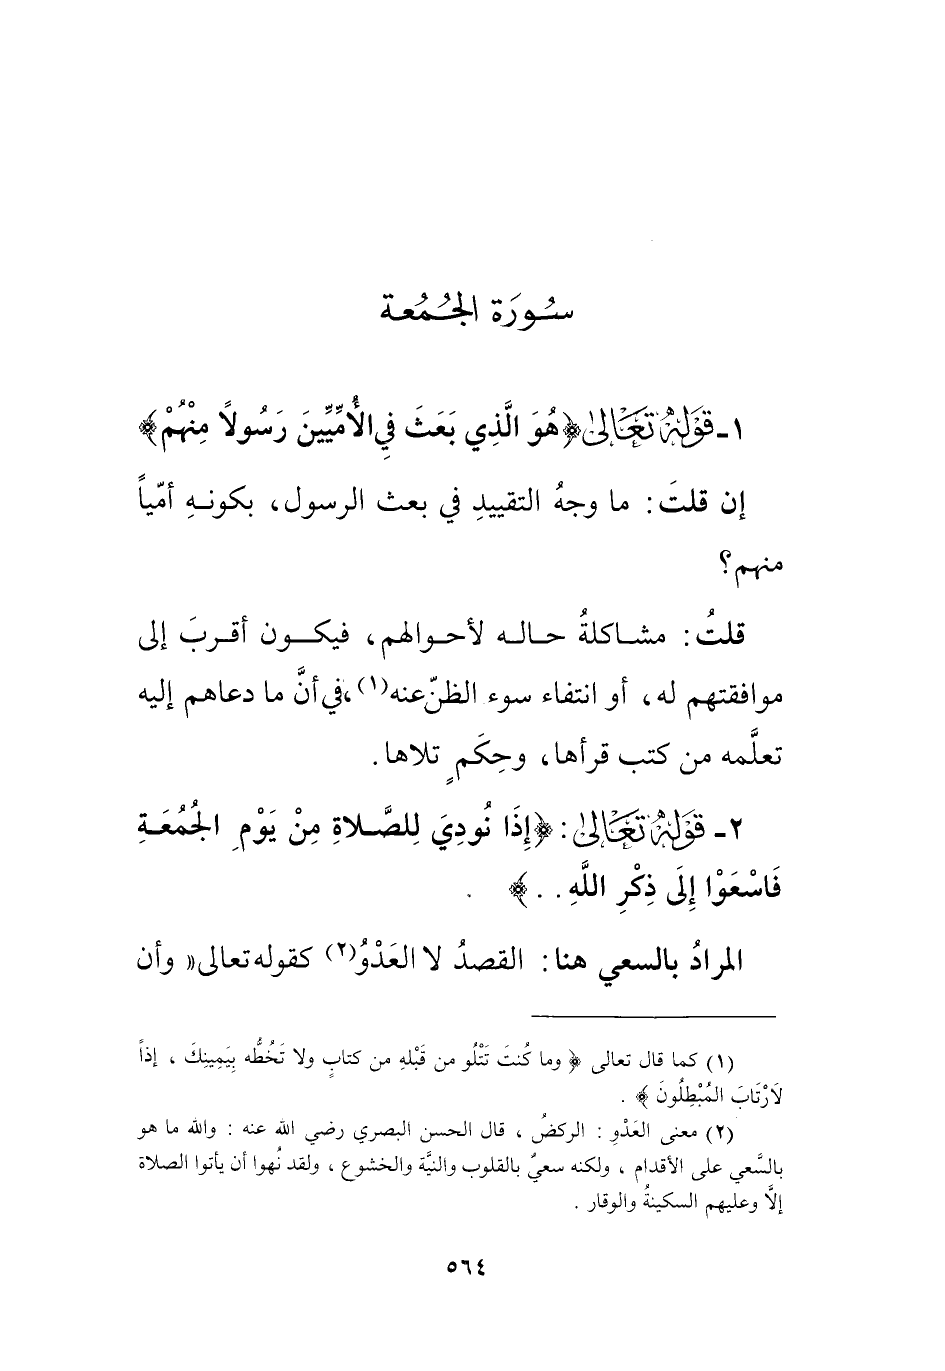 سُورَة الجُمُعة
١ـ قَوْلُهُ تَعَالَىٰ ﴿هُوَ الَّذِي بَعَثَ فِي الأُمِّيِّينَ رَسُولاً مِنْهُمْ﴾
إن قلتَ : ما وجهُ التقييدِ في بعث الرسول، بكونـهِ أمّياً
منهم؟
قلتُ : مشـاكلةُ حـالـه لأحـوالهم، فيكـون أقـربَ إلى
موافقتهم له، أو انتفاء سوء الظنّ عنه(١)،في أنَّ ما دعاهم إليه
تعلَّمه من كتب قرأها، وحِكَمٍ تلاها.
٢ـ قَوْلُهُ تَعَالَىٰ : ﴿إِذَا نُودِيَ لِلصَّـلاةِ مِنْ يَوْمِ الجُمُعَـةِ
فَاسْعَوْا إِلَى ذِكْرِ اللَّهِ . . ﴾ .
المرادُ بالسعي هنا : القصدُ لا العَدْوُ(٢) كقوله تعالى« وأن
(١) كما قال تعالى ﴿ وما كُنتَ تَتْلُو من قَبْلهِ من كتابٍ ولا تَخُطُّه بِيَمِينِكَ ، إذاً
لَارْتَابَ المُبْطِلُونَ ﴾ .
(٢) معنى العَدْوِ : الركضُ ، قال الحسن البصري رضي الله عنه : والله ما هو
بالسَّعي على الأقدام ، ولكنه سعيٌ بالقلوب والنيَّة والخشوع ، ولقد نُهوا أن يأتوا الصلاة
إلَّا وعليهم السكينةُ والوقار .
٥٦٤